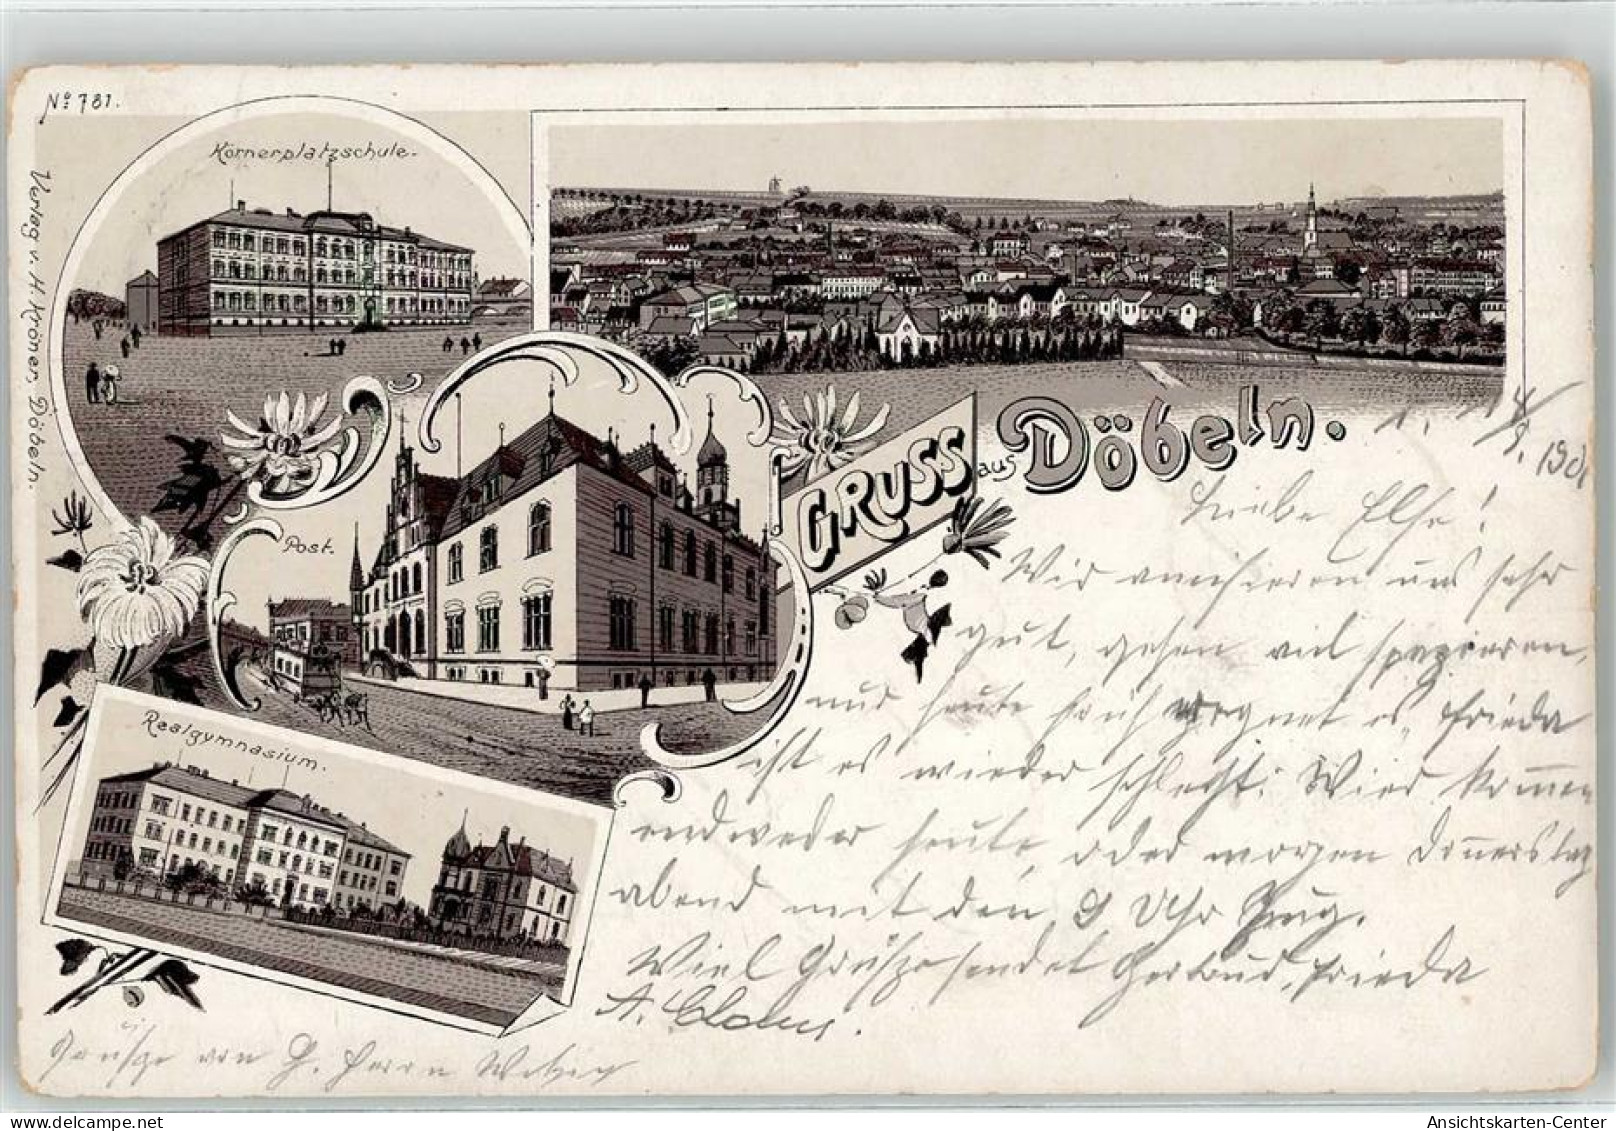 No 781.
Verlag v. H. Kröner, Döbeln.
Körnerplatzschule.
Post.
Realgymnasium.
GRUSS aus Döbeln.
Liebe Else!
Wir amüsieren uns sehr
gut, gehen viel spazieren,
nur heute früh regnet es, Frieda
ist es wieder schlecht. Wir kommen
endweder heute, oder morgen Donnerstag
abend mit den 9 Uhr Zug.
Viel Grüsse sendet Gertrud, Frieda
A.
Grüsse von Herrn
Ansichtskarten-Center